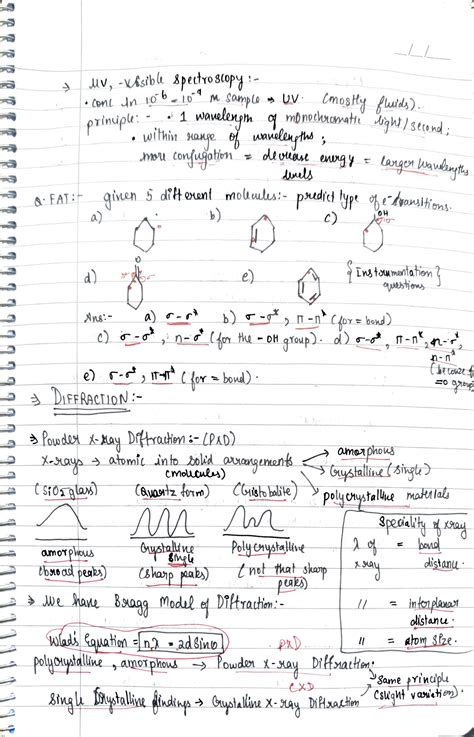 → UV, -Visible Spectroscopy:-
• conc In 10⁻⁶ - 10⁻⁹ m sample → UV (mostly fluids).
principle:- • 1 wavelength of monochromatic light/second;
• within range of wavelengths;
more conjugation = decrease energy = larger wavelengths
levels
Q. FAT:- given 5 different molecules:- predict type of e⁻ transitions.
a) b) c) OH
d) O e) { Instrumentation }
questions
Ans:- a) σ-σ* b) σ-σ*, π-π* (for = bond)
c) σ-σ*, n-σ* (for the -OH group). d) σ-σ*, π-π*, n-σ*,
n-π*
(because of
=O group)
e) σ-σ*, π-π* (for = bond).
⇒ DIFFRACTION:-
⇒ Powder X-ray Diffraction:- (PXD)
X-rays → atomic into solid arrangements → amorphous
(molecules) → Crystalline (single)
→ polycrystalline materials
(SiO₂ glass) (Quartz form) (Cristobalite)
amorphous Crystalline Polycrystalline
single
(broad peaks) (sharp peaks) (not that sharp
peaks)
Speciality of xray
λ of = bond
xray distance.
" = interplanar
distance
" = atom size.
⇒ We have Bragg Model of Diffraction:-
Equation = nλ = 2d Sinθ PXD
polycrystalline, amorphous → Powder X-ray Diffraction.
CXD → same principle
(slight variation).
Single Crystalline findings → Crystalline X-ray Diffraction